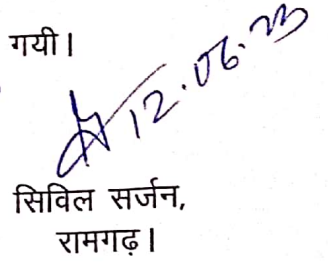 गयी।
12.06.23
सिविल सर्जन,
रामगढ़।